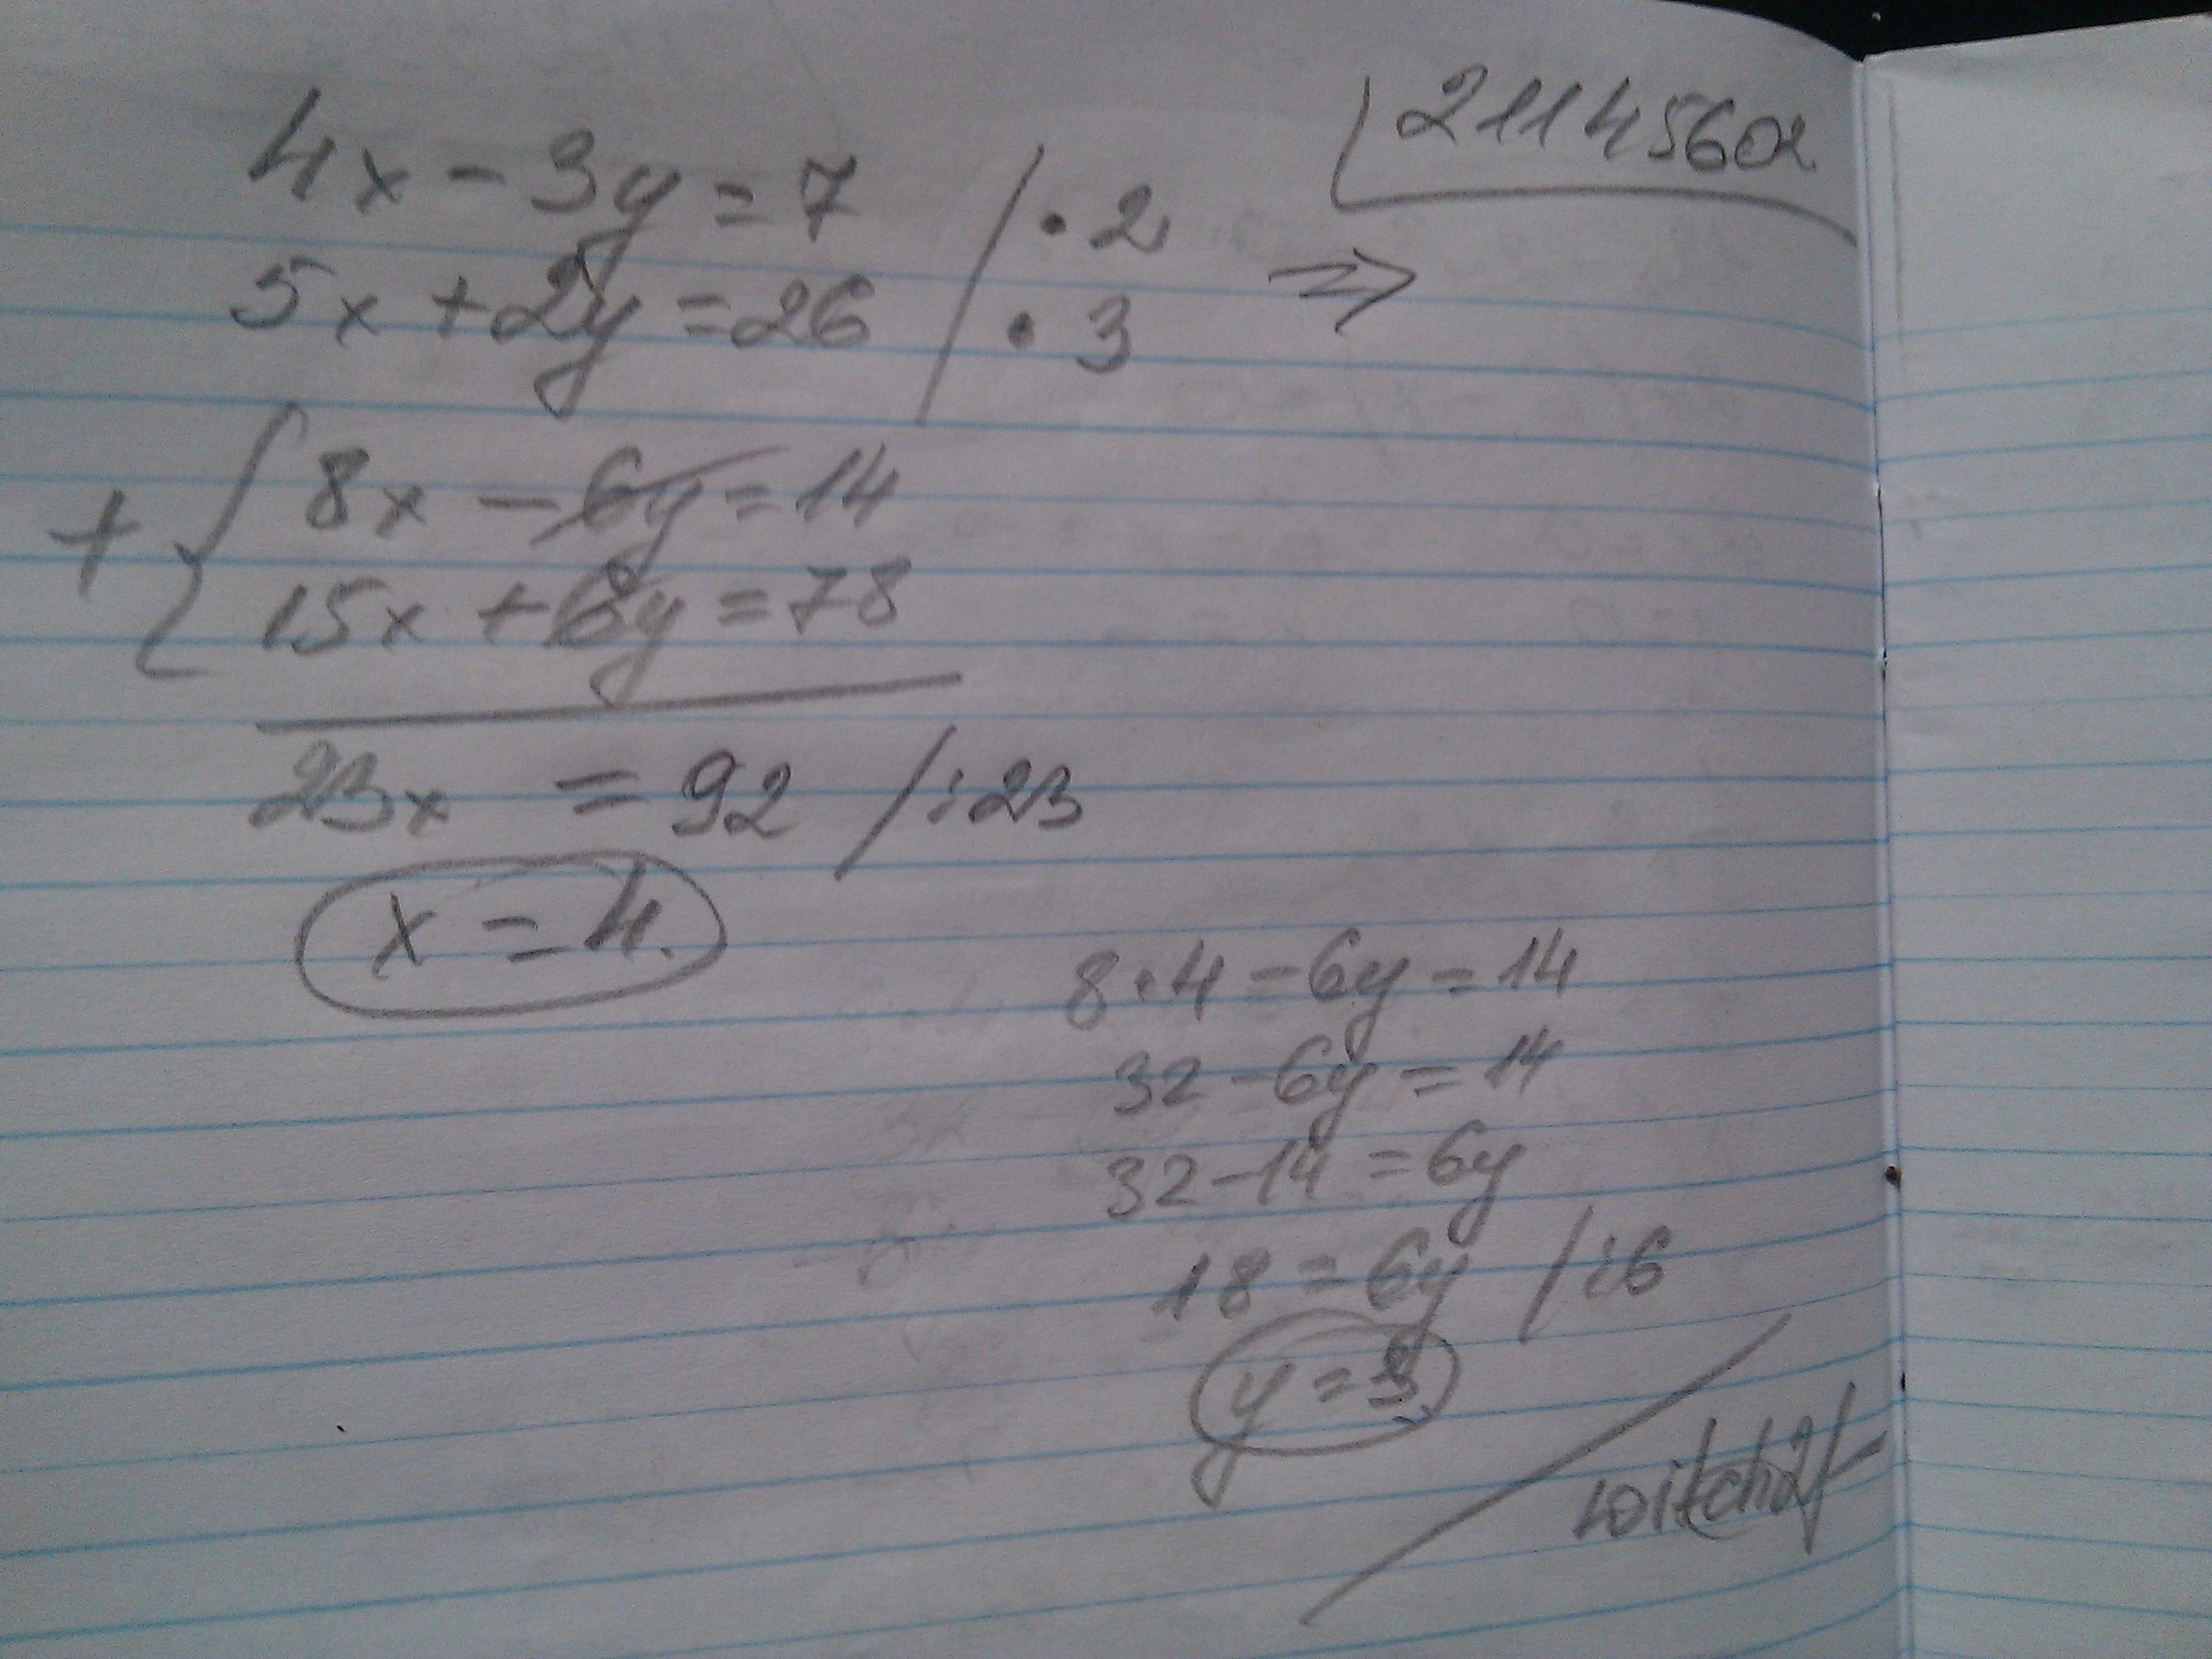 2114560a
4x - 3y = 7 / · 2
5x + 2y = 26 / · 3 =>
+ { 8x - 6y = 14
15x + 6y = 78
23x = 92 / : 23
x = 4.
8 · 4 - 6y = 14
32 - 6y = 14
32 - 14 = 6y
18 = 6y / : 6
y = 3